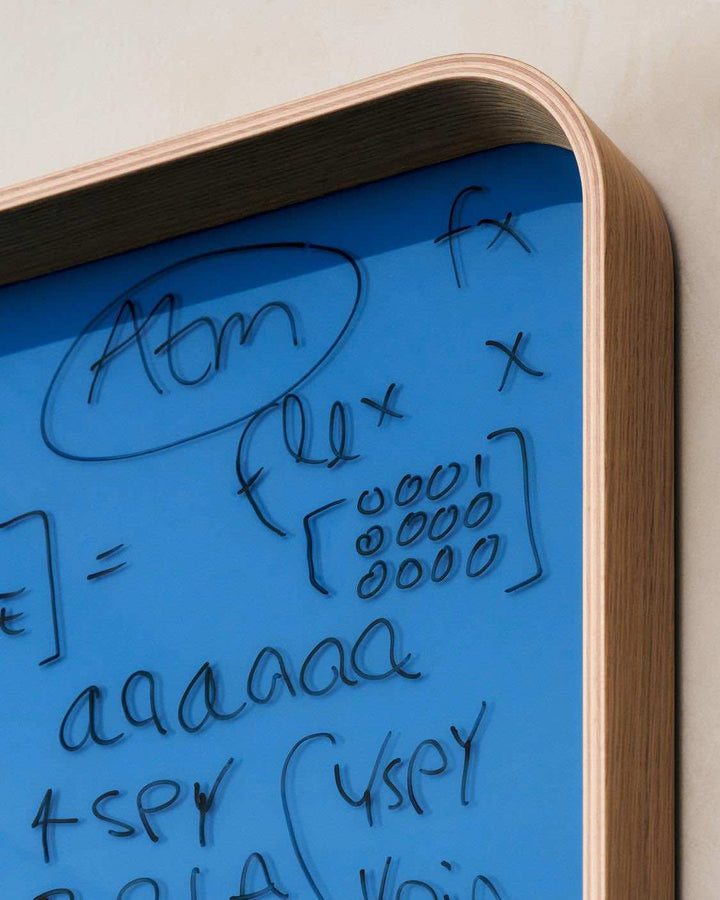 fx
Atm
x
flex
= [0001
0000
0000]
aaaaaa
4SPY (YSPY